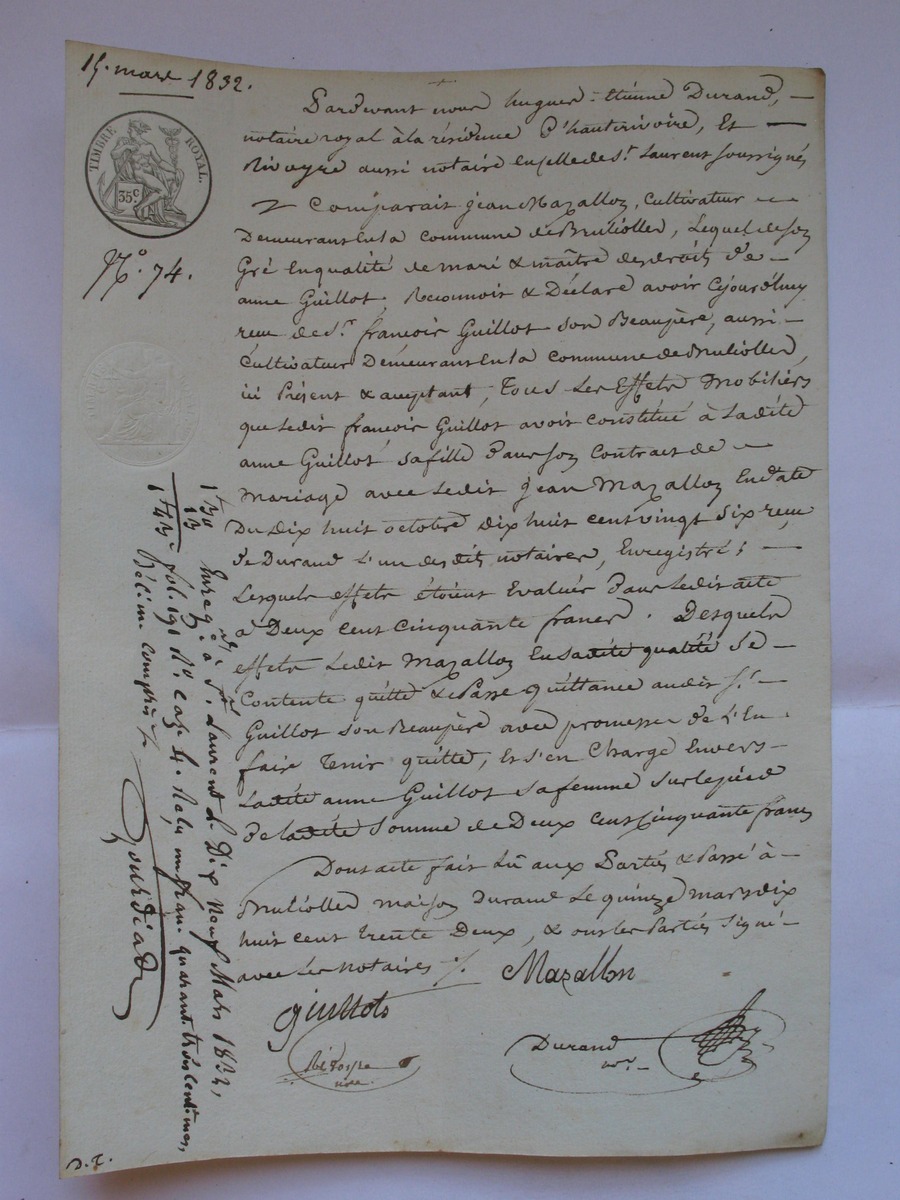 15. mars 1832.
TIMBRE ROYAL.
35c
N.o 74.
Pardevant nous hugues-Etienne Durand,
notaire royal à la résidence d'hauterivoire, Et
Rivoyre aussi notaire en celle de St. Laurent soussignés
Comparait jean Mazallon, Cultivateur
Demeurant en la commune de Brullolles, Lequel de son
Gré En qualité de mari & maître des droits d'e
anne Guillot, Reconnoit & Déclare avoir Cejourd'huy
recu de Sr. françois Guillot son Beaupère, aussi
Cultivateur Demeurant en la commune de Brullolles,
ici Présent & acceptant, Tous Les Effets Mobiliers
que Ledit françois Guillot avoit constitué à Ladite
anne Guillot sa fille Dans son Contract de
Mariage avec Ledit jean Mazallon En date
Du Dix huit octobre Dix huit cent vingt six recu
De Durand L'un desdits notaires, Enregistré ;
Lesquels effets étoient Evalués Dans Ledit acte
à Deux cent cinquante francs. Desquels
effets Ledit Mazallon En sadite qualité se
Contente quitte & Passe quittance audit Sr.
Guillot son Beaupère avec promesse de L'En
faire Tenir quitte, Et s'en Charge Envers
Ladite anne Guillot sa femme sur le pied
De ladite Somme de Deux cent Cinquante francs
Dont acte fait Lû aux Parties & Passé à
Brullolles maison Durand Le quinze mars dix
huit cent trente Deux, & ont les Parties Signé
avec Les notaires
Mazallon
guillot
Rivoyre
nre.
Durand
nre.
1f 30
13
1f 43
Enreg. à St. Laurent Le Dix Neuf Mars 1832,
fol. 191 No. Case 4. Reçu un franc quarante trois centimes,
Décime compris
Gourdiade
D.T.